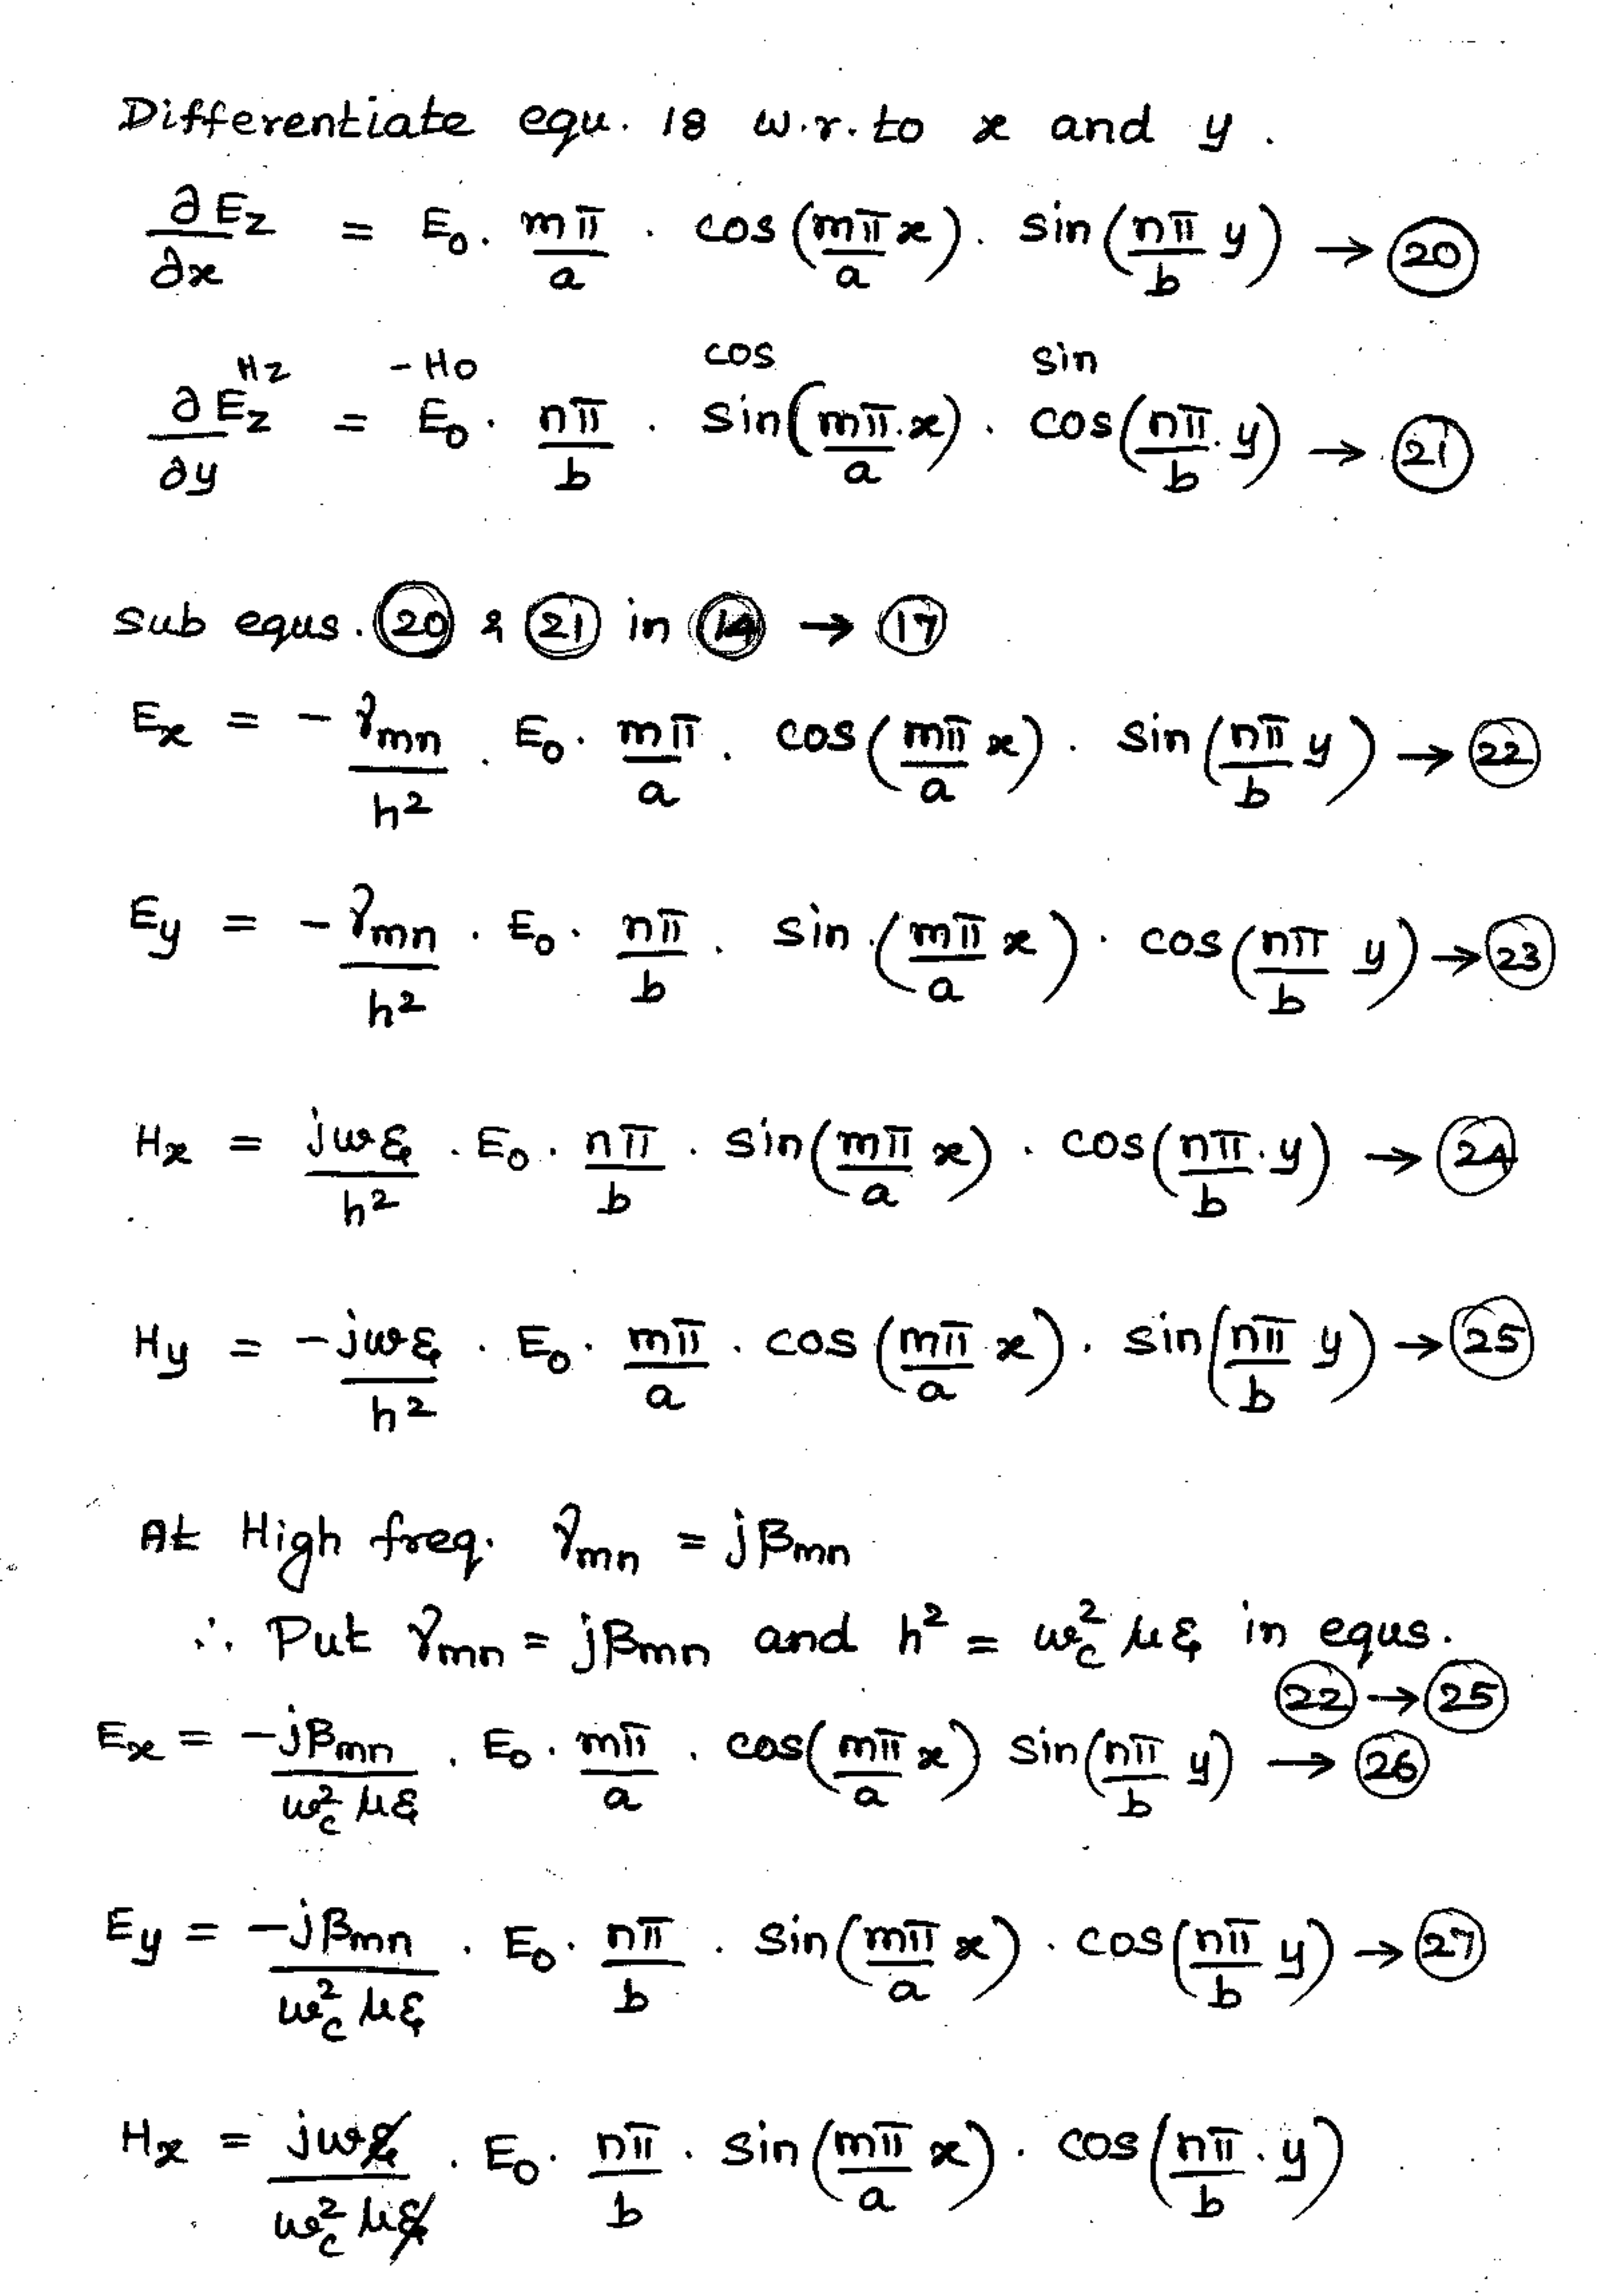 Differentiate equ. 18 w.r.to x and y.
∂Ez/∂x = E₀ . mπ/a . cos(mπ/a x) . sin(nπ/b y) → (20)
Hz -H₀ cos sin
∂Ez/∂y = E₀ . nπ/b . sin(mπ/a . x) . cos(nπ/b . y) → (21)
Sub equs. (20) & (21) in (14) → (17)
Ex = - γmn/h² . E₀ . mπ/a . cos(mπ/a x) . sin(nπ/b y) → (22)
Ey = - γmn/h² . E₀ . nπ/b . sin (mπ/a x) . cos(nπ/b y) → (23)
Hx = jωε/h² . E₀ . nπ/b . sin(mπ/a x) . cos(nπ/b . y) → (24)
Hy = -jωε/h² . E₀ . mπ/a . cos (mπ/a x) . sin(nπ/b y) → (25)
At High freq. γmn = jβmn
∴ Put γmn = jβmn and h² = ωc² με in equs.
(22) → (25)
Ex = -jβmn/ωc² με . E₀ . mπ/a . cos(mπ/a x) sin(nπ/b y) → (26)
Ey = -jβmn/ωc² με . E₀ . nπ/b . sin(mπ/a x) . cos(nπ/b y) → (27)
Hx = jωε/ωc² με . E₀ . nπ/b . sin(mπ/a x) . cos(nπ/b . y)